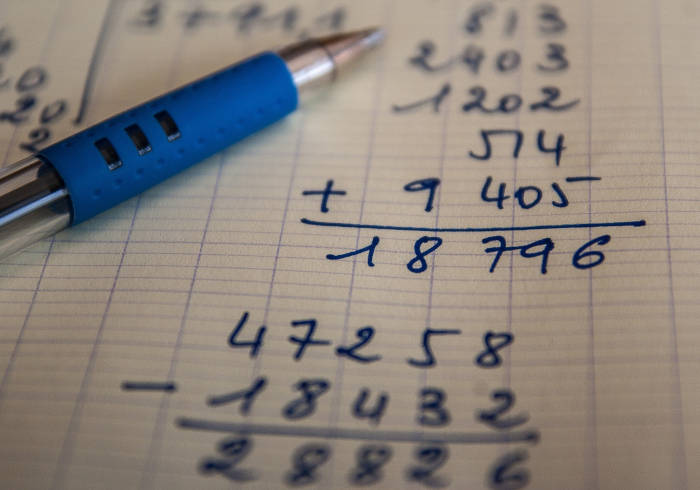 813
2403
1202
514
+ 9 405
18 796
47258
- 18432
28826